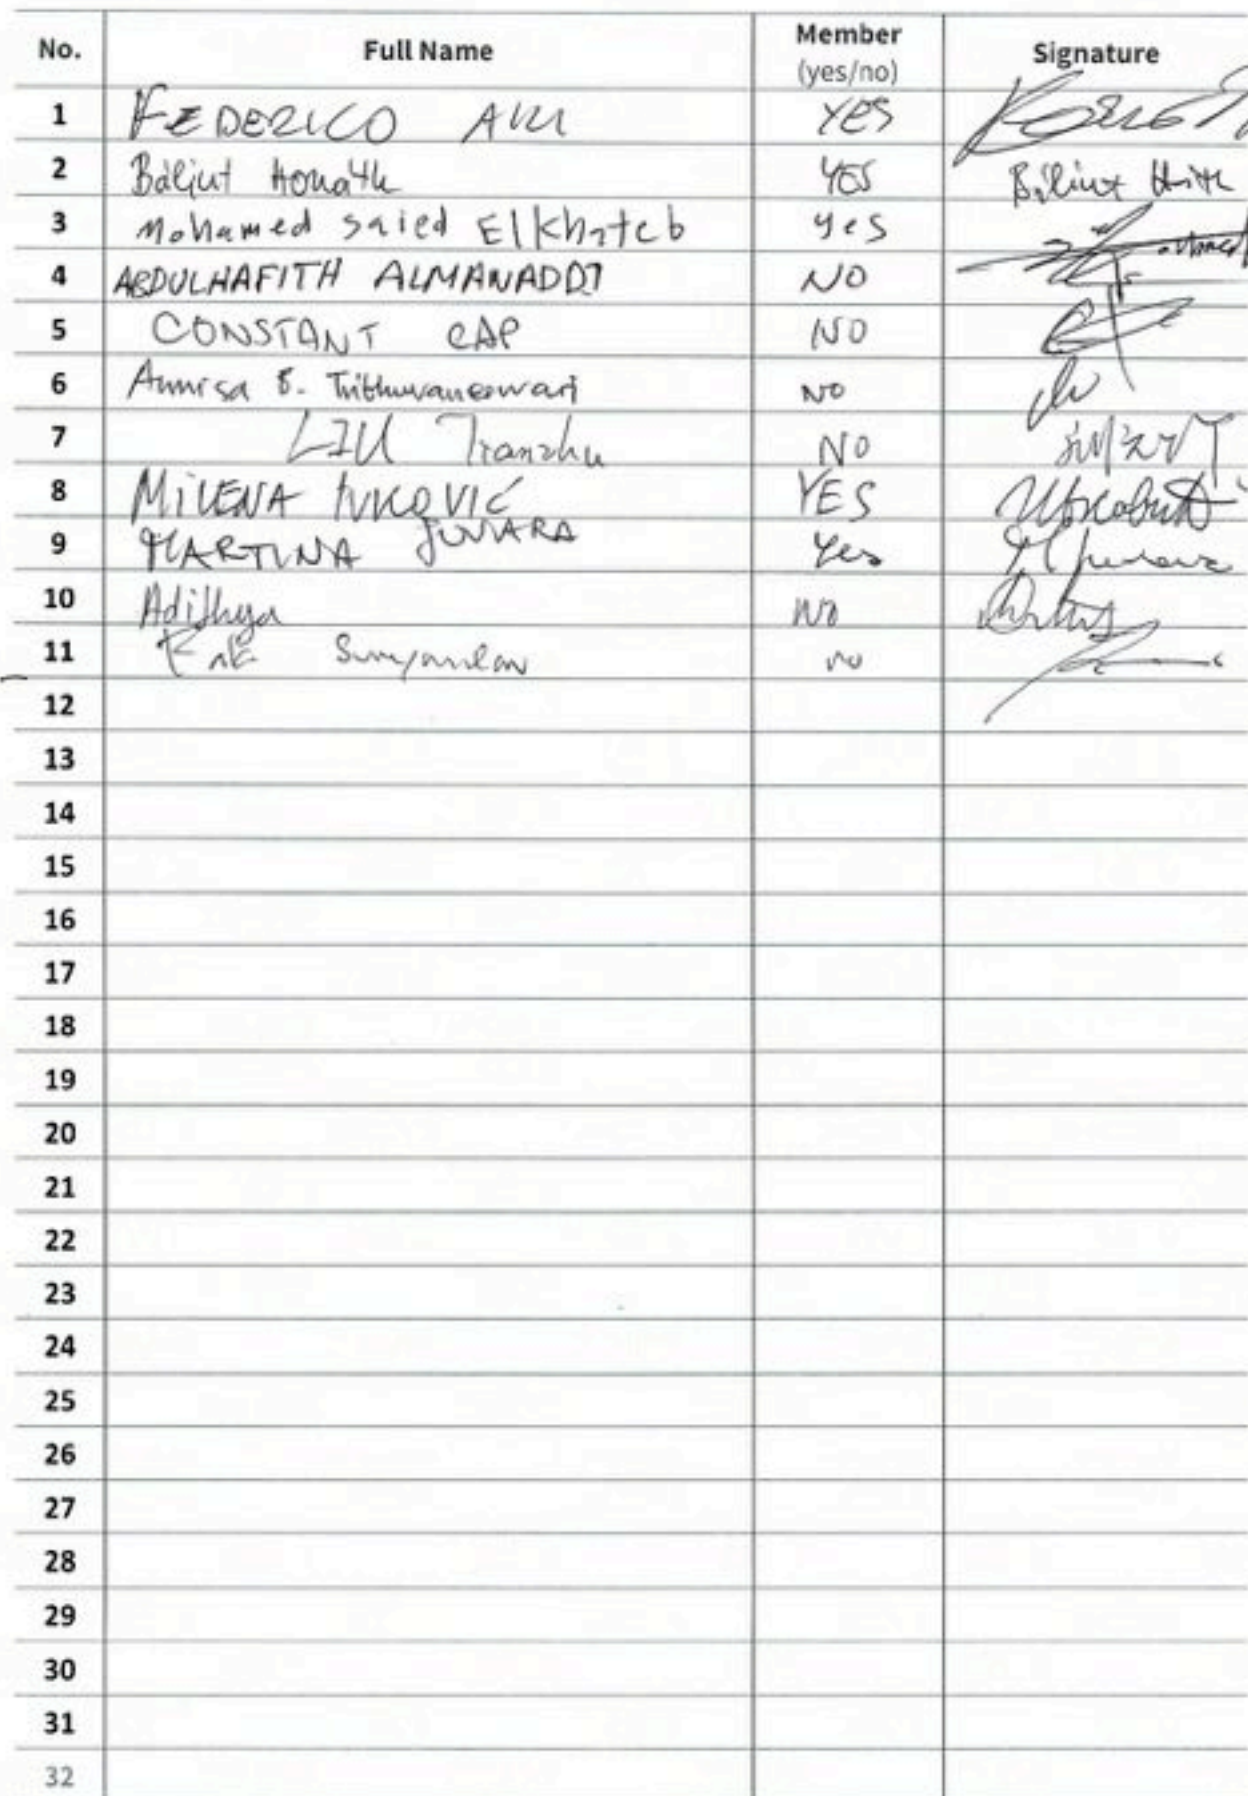 No. Full Name Member Signature
(yes/no)
1 FEDERICO YES
2 Bálint Horváth YES Bálint
3 Mohamed saied Elkhateb yes
4 ABDULHAFITH ALMANADDI NO
5 CONSTANT CAP NO
6 Annisa B. Trithuvaneswari NO
7 LIU NO
8 MILENA IVKOVIĆ YES
9 MARTINA JUVARA Yes
10 Adithya NO
11 no
12
13
14
15
16
17
18
19
20
21
22
23
24
25
26
27
28
29
30
31
32